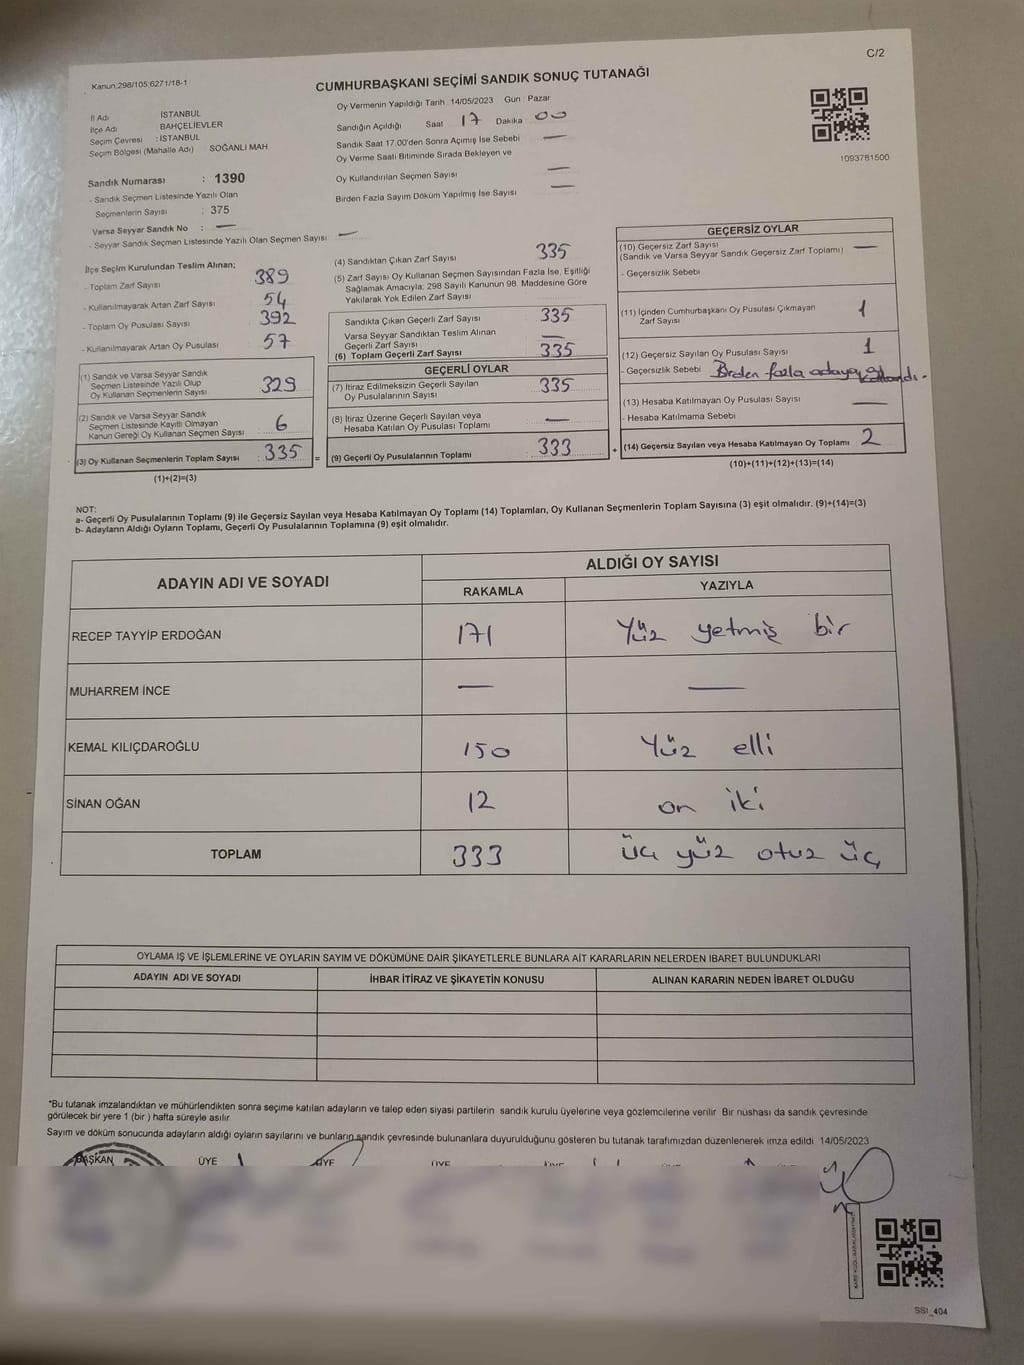 C/2
Kanun:298/105;6271/18-1
CUMHURBAŞKANI SEÇİMİ SANDIK SONUÇ TUTANAĞI
İl Adı İSTANBUL
İlçe Adı BAHÇELİEVLER
Seçim Çevresi : İSTANBUL
Seçim Bölgesi (Mahalle Adı) SOĞANLI MAH
Sandık Numarası : 1390
- Sandık Seçmen Listesinde Yazılı Olan
Seçmenlerin Sayısı : 375
Varsa Seyyar Sandık No : —
- Seyyar Sandık Seçmen Listesinde Yazılı Olan Seçmen Sayısı —
Oy Vermenin Yapıldığı Tarih 14/05/2023 Gün Pazar
Sandığın Açıldığı Saat 17 Dakika 00
Sandık Saat 17.00'den Sonra Açımış İse Sebebi —
Oy Verme Saati Bitiminde Sırada Bekleyen ve
Oy Kullandırılan Seçmen Sayısı —
Birden Fazla Sayım Döküm Yapılmış İse Sayısı —
1093781500
İlçe Seçim Kurulundan Teslim Alınan;
- Toplam Zarf Sayısı 389
- Kullanılmayarak Artan Zarf Sayısı 54
- Toplam Oy Pusulası Sayısı 392
- Kullanılmayarak Artan Oy Pusulası 57
(1) Sandık ve Varsa Seyyar Sandık
Seçmen Listesinde Yazılı Olup
Oy Kullanan Seçmenlerin Sayısı 329
(2) Sandık ve Varsa Seyyar Sandık
Seçmen Listesinde Kayıtlı Olmayan
Kanun Gereği Oy Kullanan Seçmen Sayısı 6
(3) Oy Kullanan Seçmenlerin Toplam Sayısı : 335 =
(1)+(2)=(3)
(4) Sandıktan Çıkan Zarf Sayısı 335
(5) Zarf Sayısı Oy Kullanan Seçmen Sayısından Fazla İse, Eşitliği
Sağlamak Amacıyla; 298 Sayılı Kanunun 98. Maddesine Göre
Yakılarak Yok Edilen Zarf Sayısı
Sandıkta Çıkan Geçerli Zarf Sayısı 335
Varsa Seyyar Sandıktan Teslim Alınan
Geçerli Zarf Sayısı —
(6) Toplam Geçerli Zarf Sayısı 335
GEÇERLİ OYLAR
(7) İtiraz Edilmeksizin Geçerli Sayılan
Oy Pusulalarının Sayısı 335
(8) İtiraz Üzerine Geçerli Sayılan veya
Hesaba Katılan Oy Pusulası Toplamı —
(9) Geçerli Oy Pusulalarının Toplamı 333 +
GEÇERSİZ OYLAR
(10) Geçersiz Zarf Sayısı
(Sandık ve Varsa Seyyar Sandık Geçersiz Zarf Toplamı) —
- Geçersizlik Sebebi
(11) İçinden Cumhurbaşkanı Oy Pusulası Çıkmayan
Zarf Sayısı 1
(12) Geçersiz Sayılan Oy Pusulası Sayısı 1
- Geçersizlik Sebebi Birden fazla adaya oy
(13) Hesaba Katılmayan Oy Pusulası Sayısı —
- Hesaba Katılmama Sebebi
(14) Geçersiz Sayılan veya Hesaba Katılmayan Oy Toplamı 2
(10)+(11)+(12)+(13)=(14)
NOT:
a- Geçerli Oy Pusulalarının Toplamı (9) ile Geçersiz Sayılan veya Hesaba Katılmayan Oy Toplamı (14) Toplamları, Oy Kullanan Seçmenlerin Toplam Sayısına (3) eşit olmalıdır. (9)+(14)=(3)
b- Adayların Aldığı Oyların Toplamı, Geçerli Oy Pusulalarının Toplamına (9) eşit olmalıdır.
ADAYIN ADI VE SOYADI ALDIĞI OY SAYISI
RAKAMLA YAZIYLA
RECEP TAYYİP ERDOĞAN 171 Yüz yetmiş bir
MUHARREM İNCE — —
KEMAL KILIÇDAROĞLU 150 Yüz elli
SİNAN OĞAN 12 on iki
TOPLAM 333 üç yüz otuz üç
OYLAMA İŞ VE İŞLEMLERİNE VE OYLARIN SAYIM VE DÖKÜMÜNE DAİR ŞİKAYETLERLE BUNLARA AİT KARARLARIN NELERDEN İBARET BULUNDUKLARI
ADAYIN ADI VE SOYADI İHBAR İTİRAZ VE ŞİKAYETİN KONUSU ALINAN KARARIN NEDEN İBARET OLDUĞU
*Bu tutanak imzalandıktan ve mühürlendikten sonra seçime katılan adayların ve talep eden siyasi partilerin sandık kurulu üyelerine veya gözlemcilerine verilir Bir nüshası da sandık çevresinde
görülecek bir yere 1 (bir ) hafta süreyle asılır
Sayım ve döküm sonucunda adayların aldığı oyların sayılarını ve bunların sandık çevresinde bulunanlara duyurulduğunu gösteren bu tutanak tarafımızdan düzenlenerek imza edildi 14/05/2023
BAŞKAN ÜYE ÜYE ÜYE
SSI_404